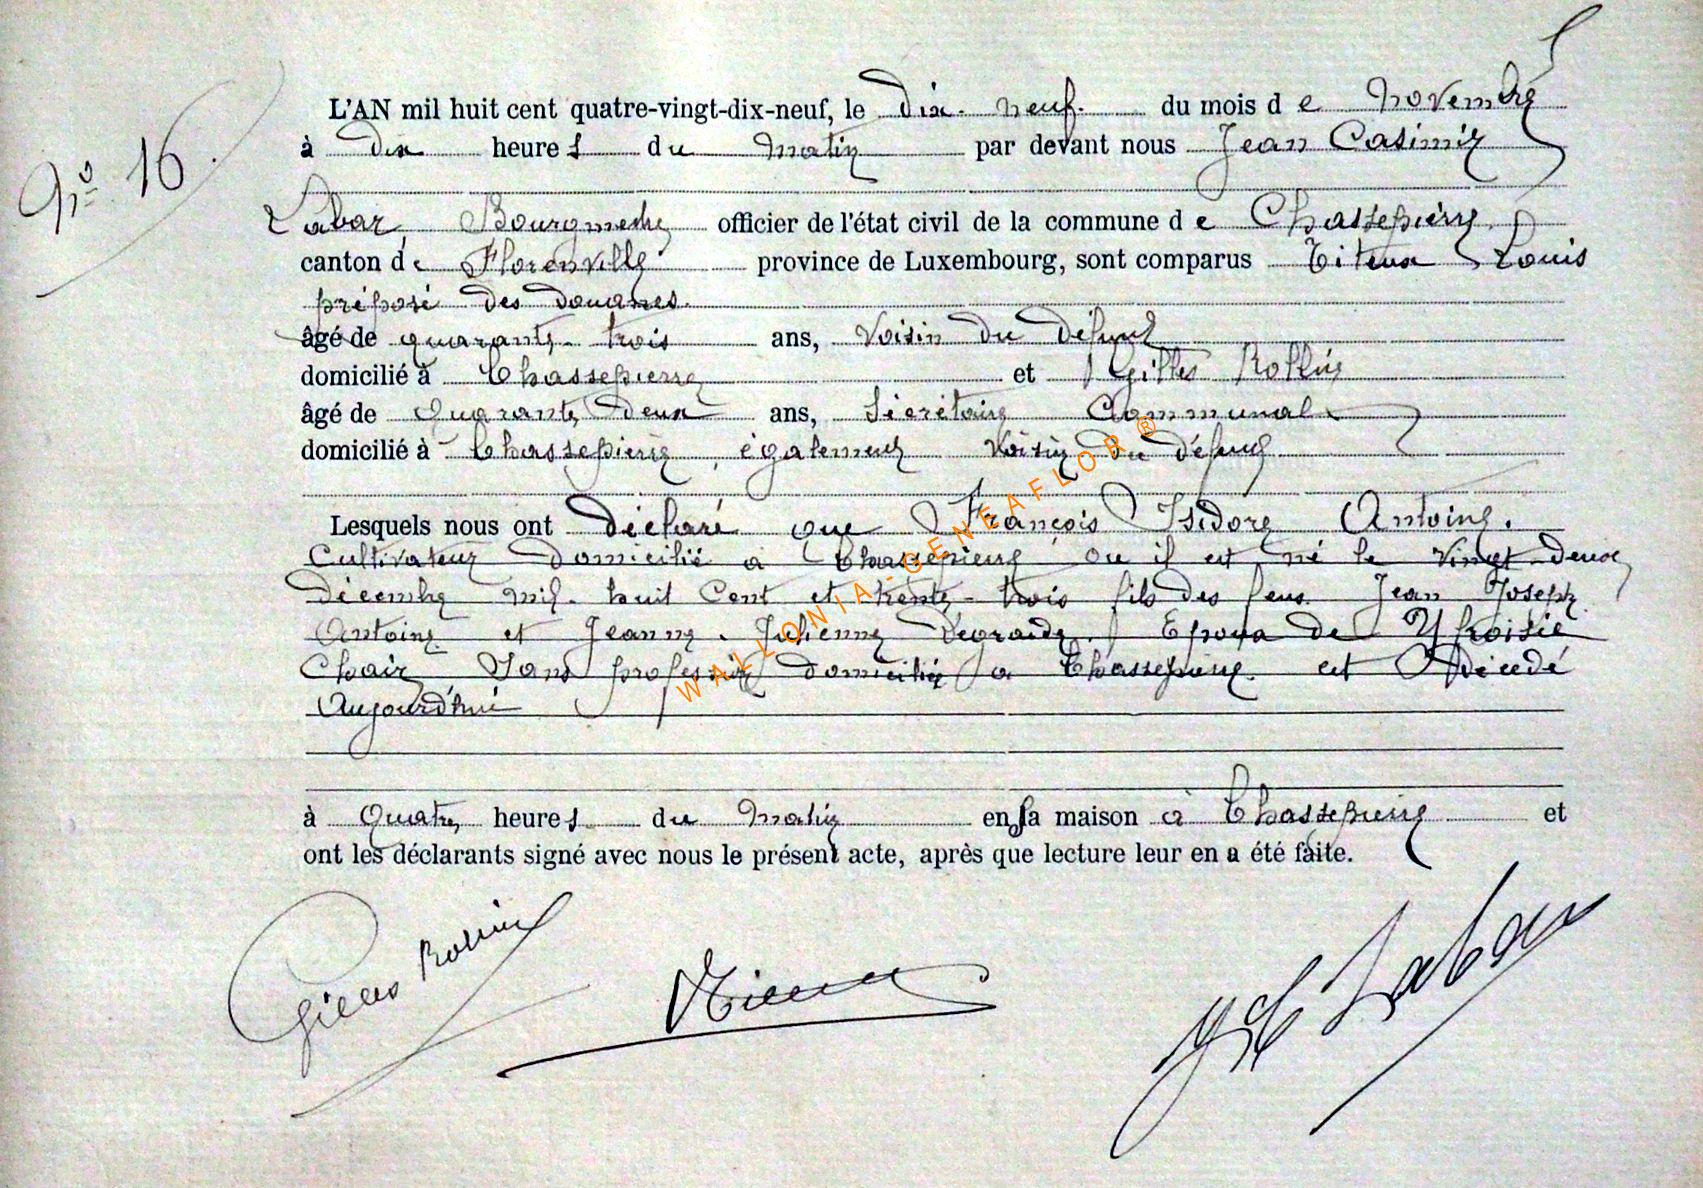 N° 16.
L'AN mil huit cent quatre-vingt-dix-neuf, le dix-neuf. du mois de Novembre
à dix heures du matin par devant nous Jean Casimir
Labar Bourgmestre officier de l'état civil de la commune de Chassepierre,
canton de Florenville province de Luxembourg, sont comparus Titeux Louis
préposé des douanes.
âgé de quarante-trois ans, voisin du défunt
domicilié à Chassepierre et Gilles Rollin
âgé de quarante deux ans, Sécrétaire Communal
domicilié à Chassepierre, également voisin du défunt.
Lesquels nous ont déclaré que François Isidore Antoine.
Cultivateur domicilié à Chassepierre où il est né le vingt-deux
décembre mil-huit cent et trente-trois fils des feus Jean Joseph
Antoine et Jeanne Julienne Epoux de
sans profession domiciliée à Chassepierre. est décédé
Aujourd'hui
à quatre heures du matin en sa maison à Chassepierre et
ont les déclarants signé avec nous le présent acte, après que lecture leur en a été faite.
Gilles Rollin
Titeux
J C Labar
WALLONIA-GENEAFLOR®